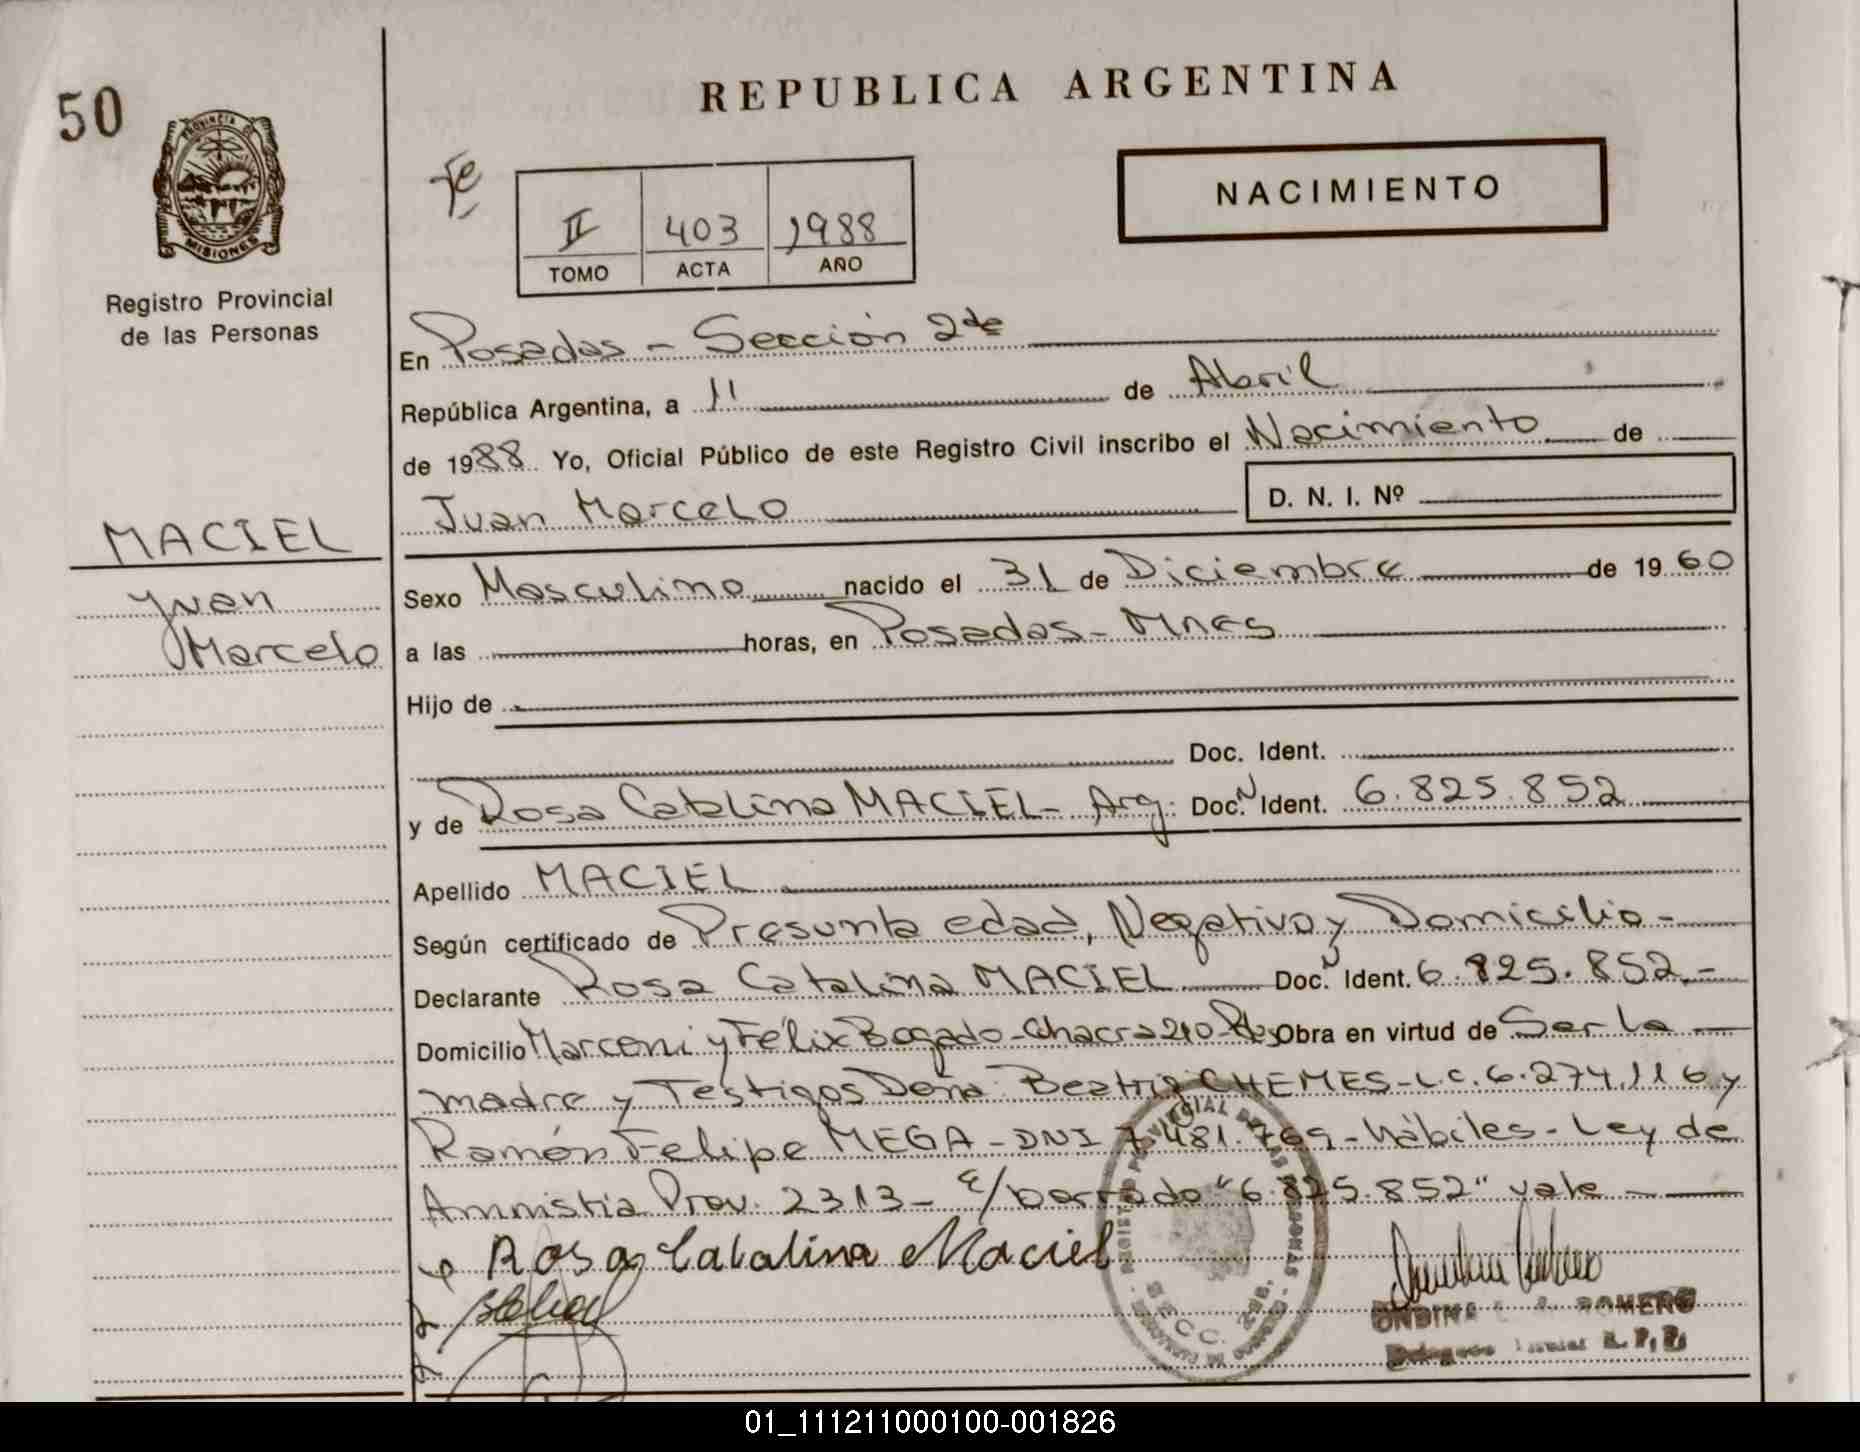 50
REPUBLICA ARGENTINA
PROVINCIA DE
MISIONES
Registro Provincial
de las Personas
II 403 1988
TOMO ACTA AÑO
NACIMIENTO
En Posadas - Sección 2da
República Argentina, a 11 de Abril
de 1988 Yo, Oficial Público de este Registro Civil inscribo el Nacimiento de
Juan Marcelo D. N. I. Nº
MACIEL
Juan
Marcelo
Sexo Masculino nacido el 31 de Diciembre de 1960
a las horas, en Posadas - Mnes
Hijo de
Doc. Ident.
y de Rosa Catalina MACIEL - Arg. Doc. N Ident. 6.825.852
Apellido MACIEL
Según certificado de Presunta edad, Negativo y Domicilio -
Declarante Rosa Catalina MACIEL Doc. N Ident. 6.825.852 -
Domicilio Marconi y Félix Bogado - Chacra 210 Pdas Obra en virtud de Ser la
madre y Testigos Doña Beatriz CHEMES - L.C. 6.274.116 y
Ramón Felipe MEGA - DNI 7.481.769 - Hábiles - Ley de
Amnistia Prov. 2313 - E/borrado "6.825.852" vale
Rosa Catalina Maciel
SECC. 2da.
ONDINA ROMERO
R. P. P.
01_111211000100-001826